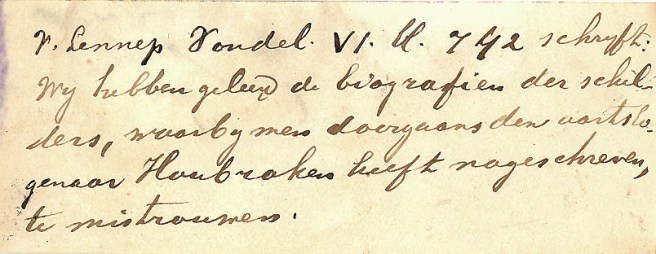 v. Lennep Vondel. VI. bl. 742 schryft:
Wy hebben geleerd de biografien der schil-
ders, waarby men doorgaans den aartslo-
genaar Houbraken heeft nageschreven,
te mistrouwen.